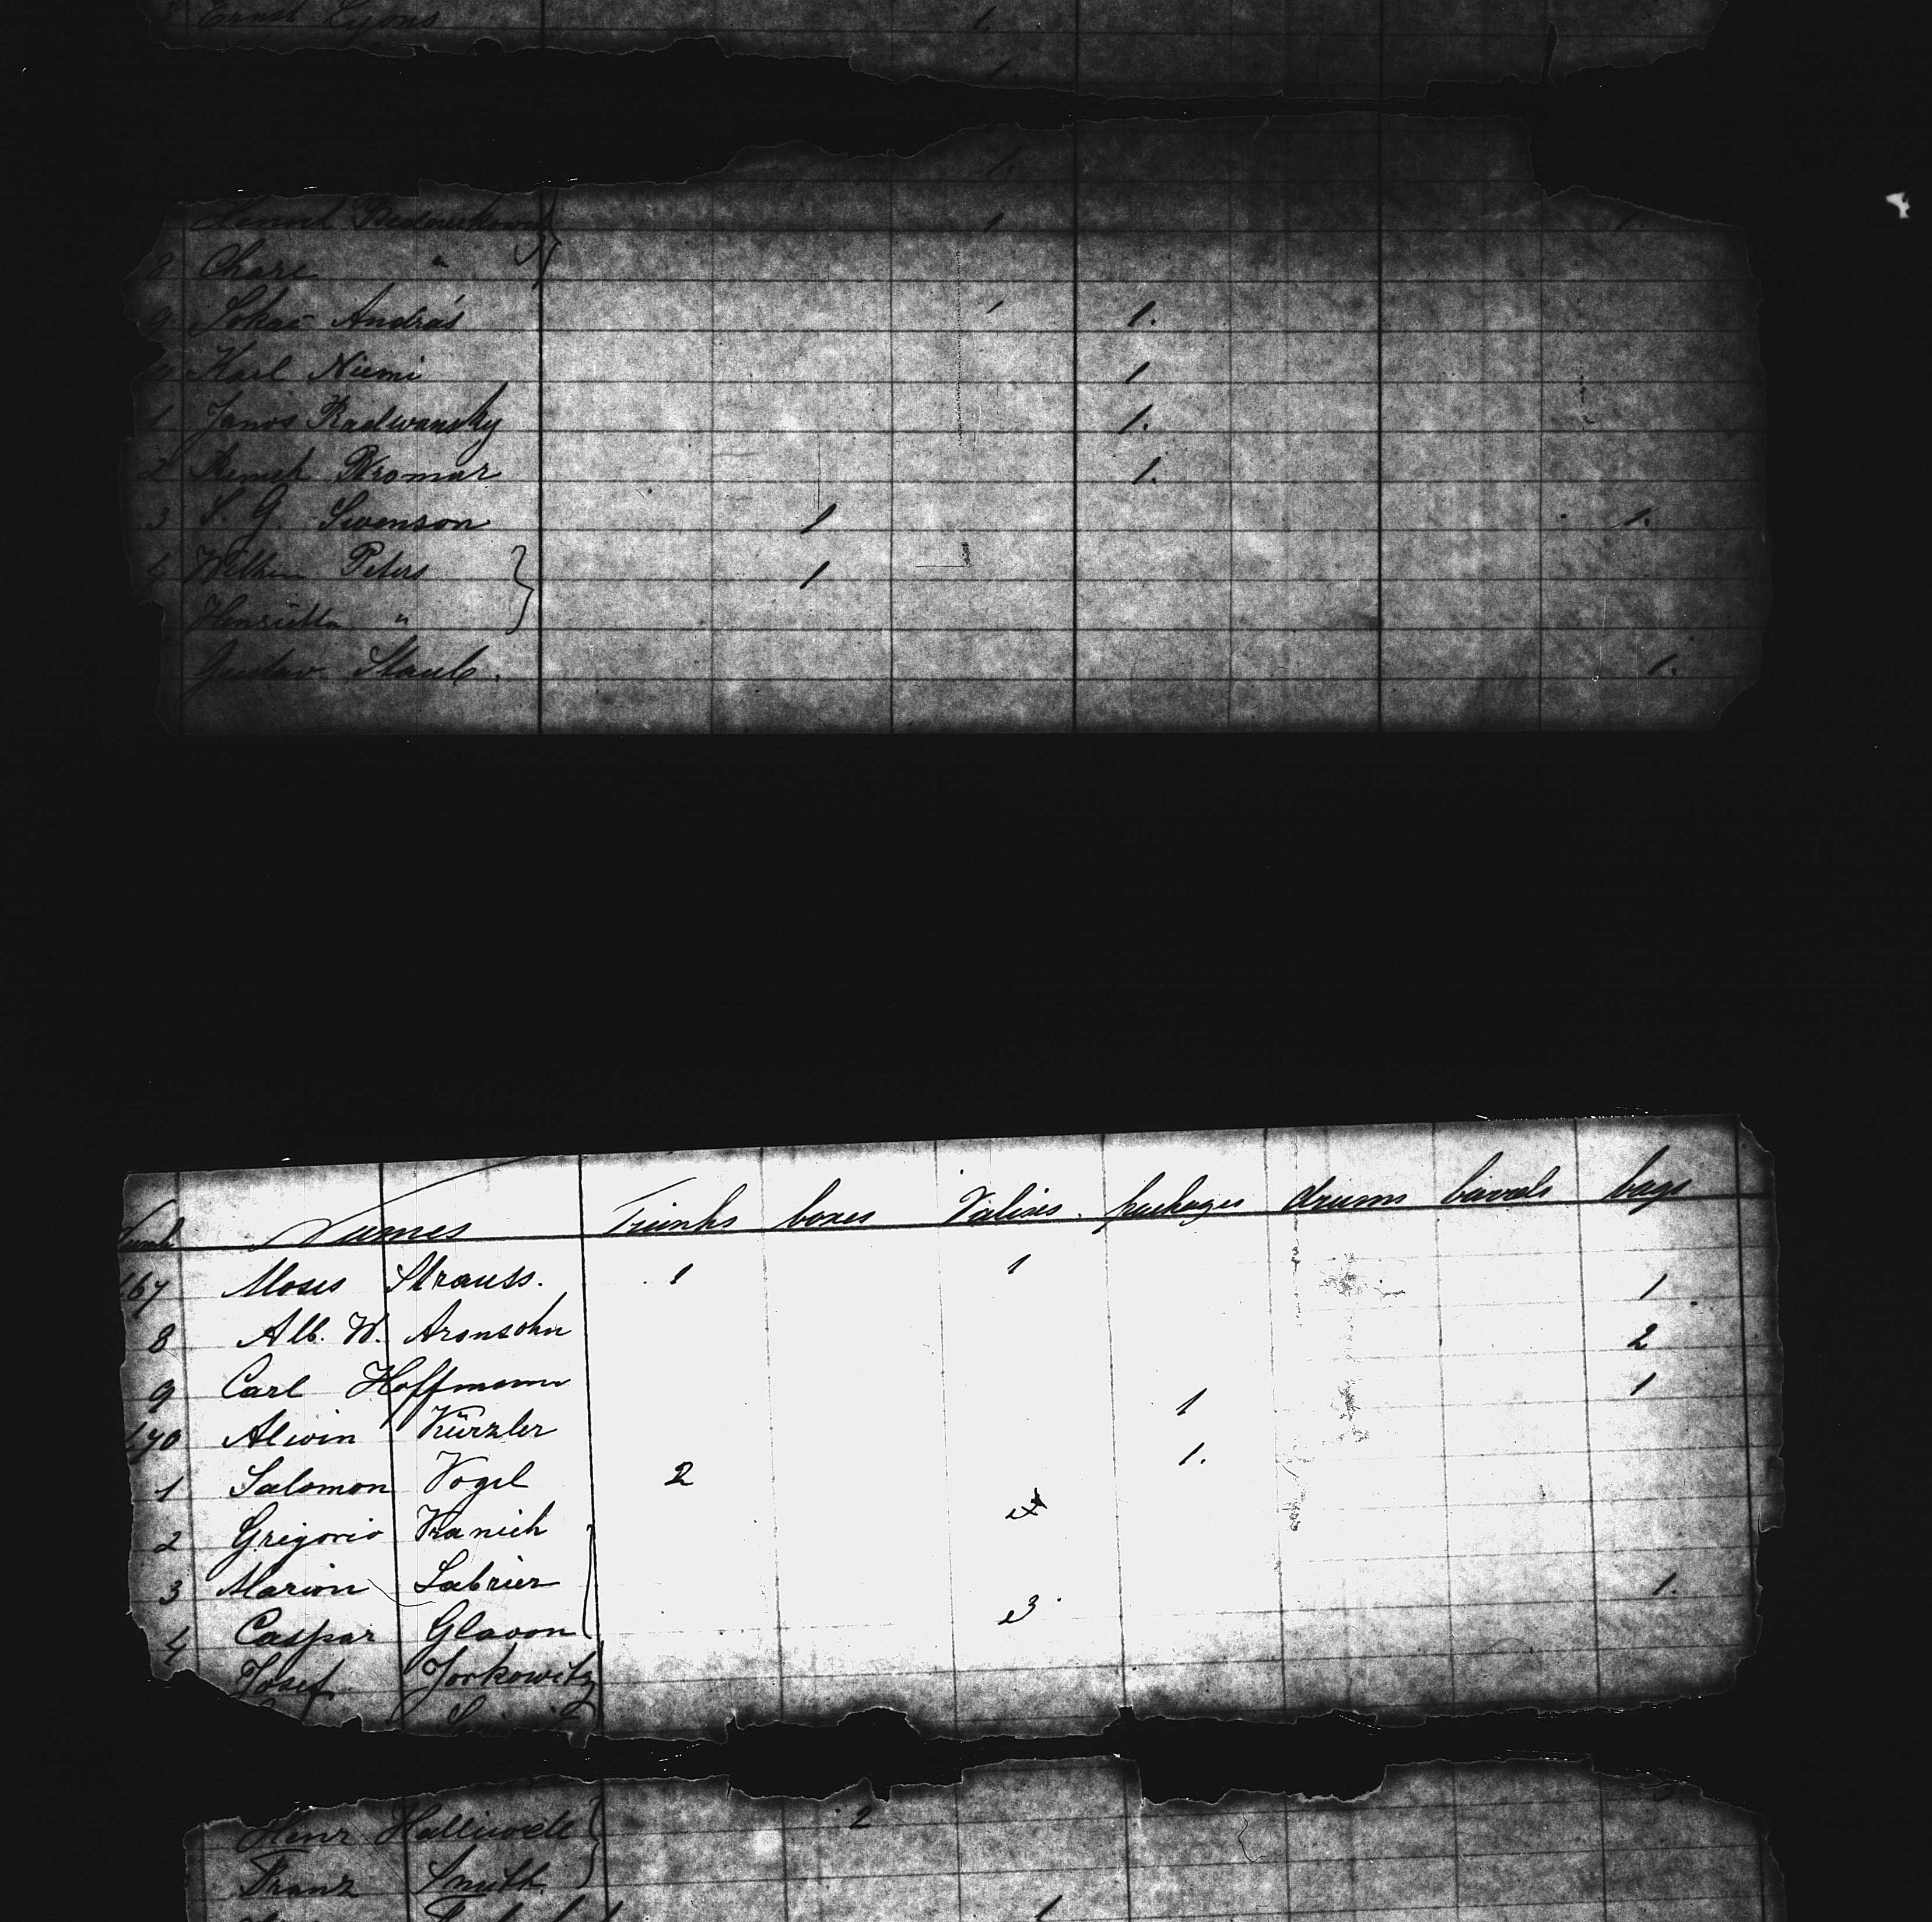 Ernst Lyons 1.
1.
1.
1 1.
Chare "
9 Sokac András 1 1.
Karl Niemi 1
1 Janos Radwansky 1.
2 1.
3 S. G. Swenson 1 1.
4 Wilhem Peters 1
Henrietta "
Gustav Staub. 1.
Names Trunks boxes Valises packages drums barrels bags
167 Moses Strauss. 1 1 1
8 Alb. W. Aronsohn 2
9 Carl Hoffmann 1 1
170 Alwin Kürzler 1.
1 Salomon Vogel 2
2 Gregorio Kranich
3 Marion Labrier 1.
4 Caspar Glavon 3
Josef Jorkowitz
Henr Halliwell 2
Franz Smith
1